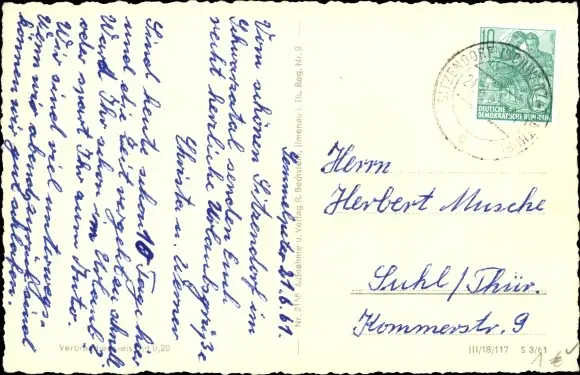 Vom schönen Sitzendorf im
Schwarzatal senden Euch
recht herzliche Urlaubsgrüße
Christa u. Werner
Sind heute schon 10 Tage hier
und die Zeit vergeht so schnell.
Wart Ihr schon im Urlaub
oder spart Ihr zum Auto.
Wir sind viel unterwegs.
Wenn wir abends müde sind
können wir gut schlafen.
21.6.61.
Nr. 2158 Aufnahme u. Verlag R. Bechstein, (Ilmenau i. Th. Reg. Nr. 9
10
DEUTSCHE
DEMOKRATISCHE REPUBLIK
SITZENDORF
Herrn
Herbert Musche
Suhl/Thür.
Kommerstr. 9
0,20
III/18/117 S 3/61
1 €